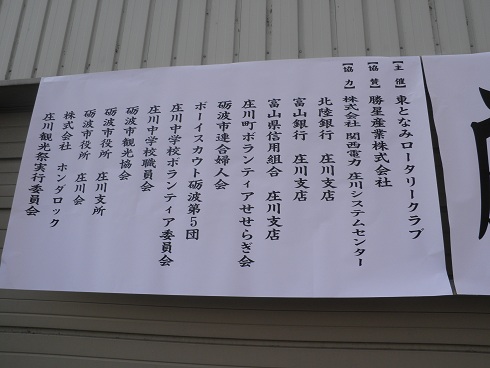 【主催】東となみロータリークラブ
【協賛】勝星産業株式会社
【協力】株式会社 関西電力 庄川システムセンター
北陸銀行 庄川支店
富山銀行 庄川支店
富山県信用組合 庄川支店
庄川町ボランティアせせらぎ会
砺波市連合婦人会
ボーイスカウト砺波第5団
庄川中学校ボランティア委員会
庄川中学校職員会
砺波市観光協会
砺波市役所 庄川支所
砺波市役所 庄川会
株式会社 ホンダロック
庄川観光祭実行委員会